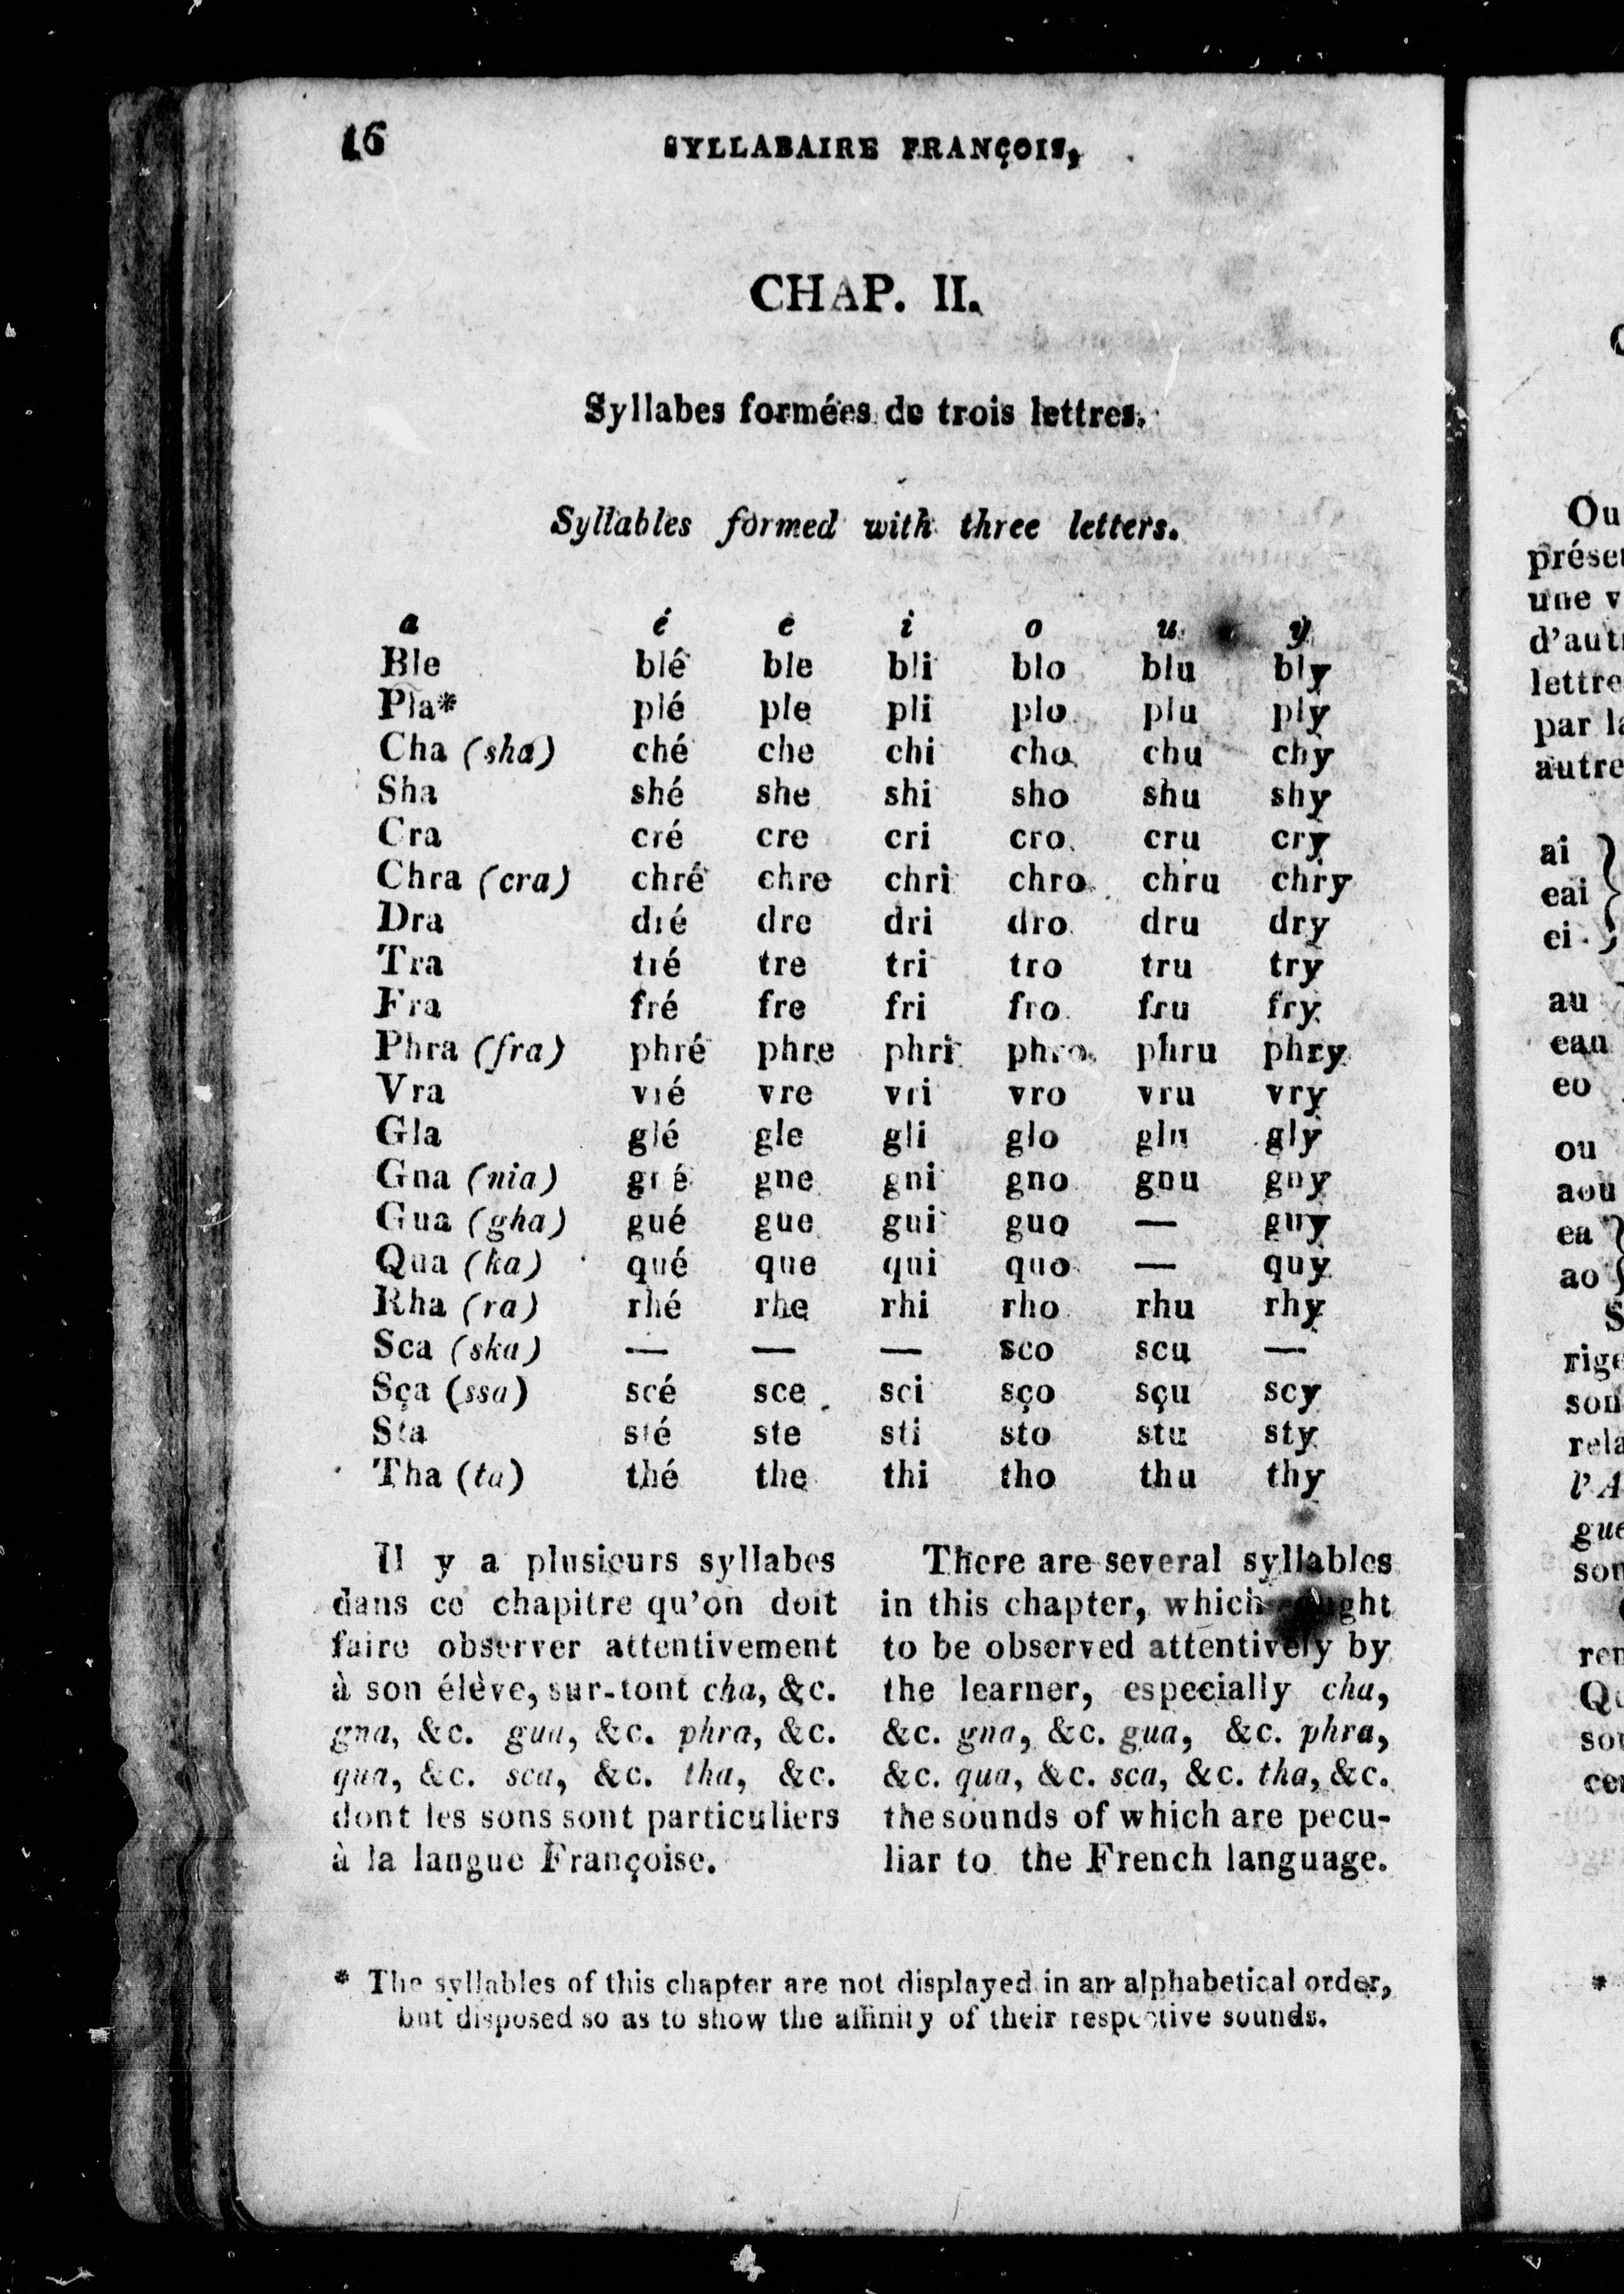 16 SYLLABAIRE FRANÇOIS,
CHAP. II.
Syllabes formées de trois lettres.
Syllables formed with three letters.
a é e i o u y
Ble blé ble bli blo blu bly
Pla* plé ple pli plo plu ply
Cha (sha) ché che chi cho chu chy
Sha shé she shi sho shu shy
Cra cré cre cri cro cru cry
Chra (cra) chré chre chri chro chru chry
Dra dré dre dri dro dru dry
Tra tré tre tri tro tru try
Fra fré fre fri fro fru fry
Phra (fra) phré phre phri phro phru phry
Vra vré vre vri vro vru vry
Gla glé gle gli glo glu gly
Gna (nia) gné gne gni gno gnu gny
Gua (gha) gué gue gui guo — guy
Qua (ka) qué que qui quo — quy
Rha (ra) rhé rhe rhi rho rhu rhy
Sca (ska) — — — sco scu —
Sça (ssa) scé sce sci sço sçu scy
Sta sté ste sti sto stu sty
Tha (ta) thé the thi tho thu thy
Il y a plusieurs syllabes
dans ce chapitre qu'on doit
faire observer attentivement
à son élève, sur-tout cha, &c.
gna, &c. gua, &c. phra, &c.
qua, &c. sca, &c. tha, &c.
dont les sons sont particuliers
à la langue Françoise.
There are several syllables
in this chapter, which ought
to be observed attentively by
the learner, especially cha,
&c. gna, &c. gua, &c. phra,
&c. qua, &c. sca, &c. tha, &c.
the sounds of which are pecu-
liar to the French language.
* The syllables of this chapter are not displayed in an alphabetical order,
but disposed so as to show the affinity of their respective sounds.
Ou
une v
par la
autre
ai
eai
ei
au
eau
eo
ou
aou
ea
ao